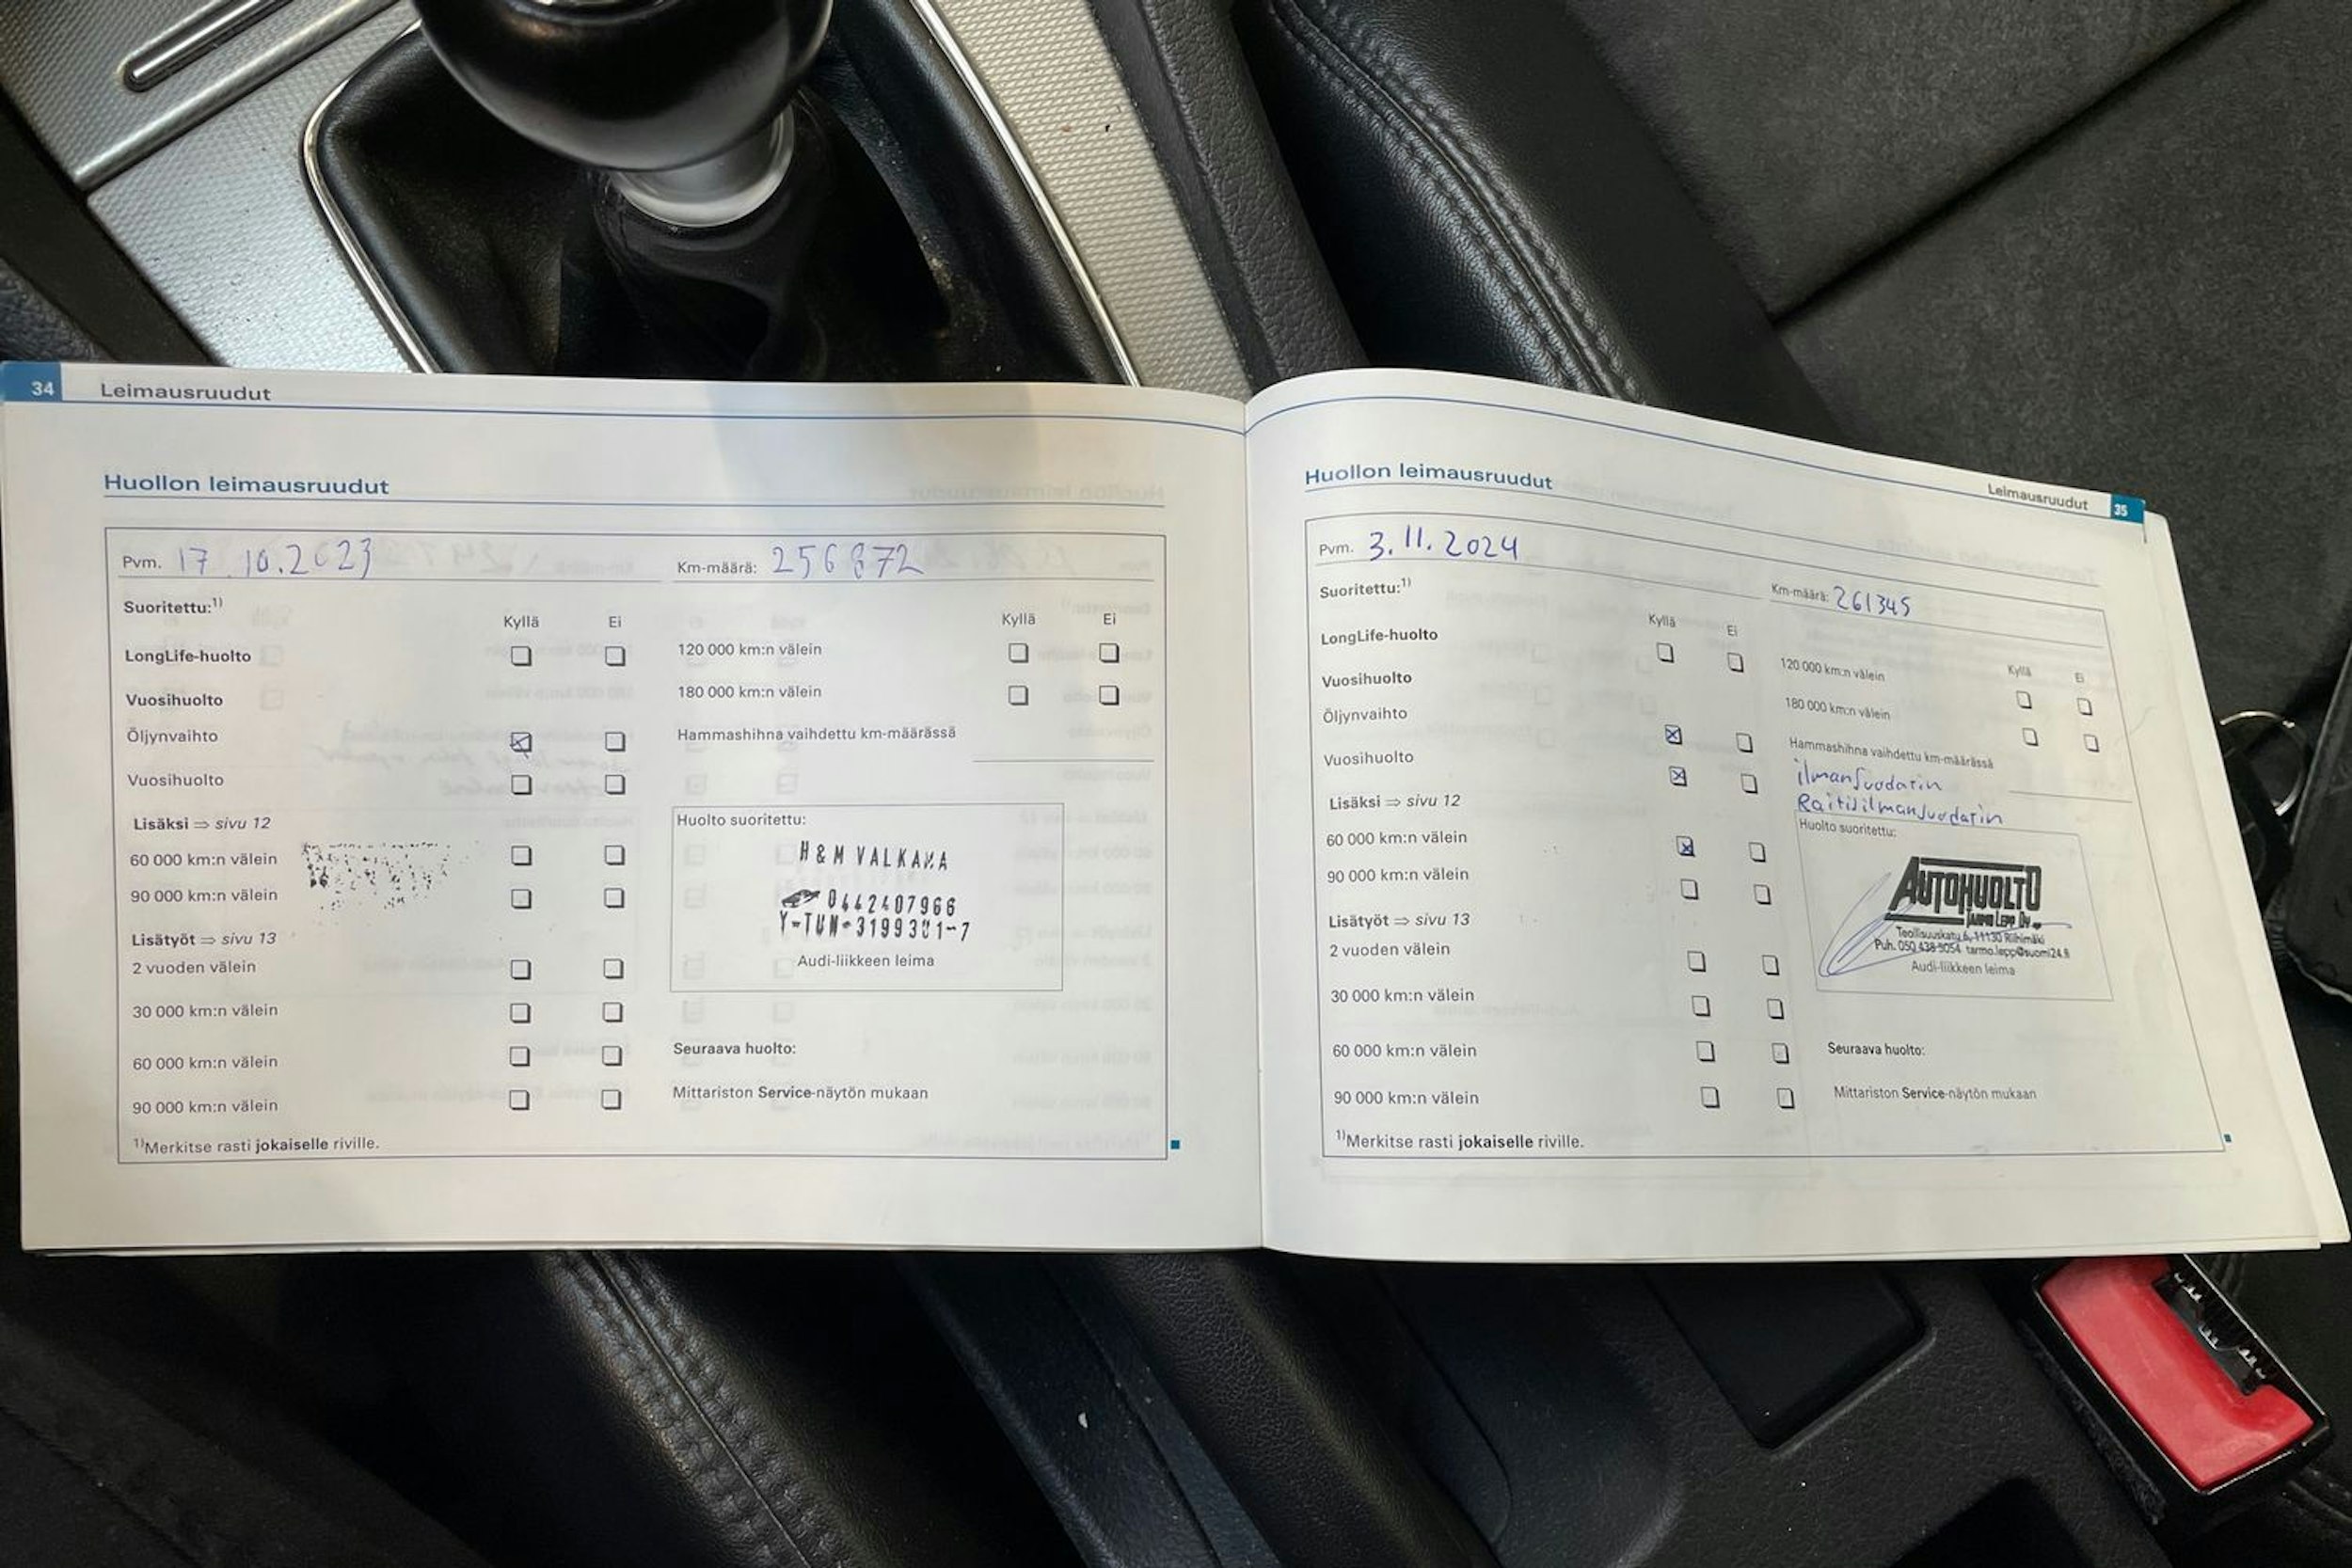 34 Leimausruudut
Huollon leimausruudut
Pvm. 17.10.2023 Km-määrä: 256872
Suoritettu:¹⁾
Kyllä Ei Kyllä Ei
LongLife-huolto 120 000 km:n välein
Vuosihuolto 180 000 km:n välein
Öljynvaihto Hammashihna vaihdettu km-määrässä
Vuosihuolto
Lisäksi ⇒ sivu 12 Huolto suoritettu:
60 000 km:n välein H & M VALKAMA
90 000 km:n välein 0442407966
Y-TUN-3199301-7
Lisätyöt ⇒ sivu 13 Audi-liikkeen leima
2 vuoden välein
30 000 km:n välein
60 000 km:n välein Seuraava huolto:
90 000 km:n välein Mittariston Service-näytön mukaan
¹⁾Merkitse rasti jokaiselle riville.
Leimausruudut 35
Huollon leimausruudut
Pvm. 3.11.2024 Km-määrä: 261345
Suoritettu:¹⁾
Kyllä Ei Kyllä Ei
LongLife-huolto 120 000 km:n välein
Vuosihuolto 180 000 km:n välein
Öljynvaihto Hammashihna vaihdettu km-määrässä
Vuosihuolto ilmansuodatin
Raitisilmansuodatin
Lisäksi ⇒ sivu 12 Huolto suoritettu:
60 000 km:n välein AUTOHUOLTO
90 000 km:n välein TARMO LEPP OY
Lisätyöt ⇒ sivu 13 Teollisuuskatu 6, 11130 Riihimäki
2 vuoden välein Puh. 050 438 9054 tarmo.lepp@suomi24.fi
Audi-liikkeen leima
30 000 km:n välein
60 000 km:n välein Seuraava huolto:
90 000 km:n välein Mittariston Service-näytön mukaan
¹⁾Merkitse rasti jokaiselle riville.